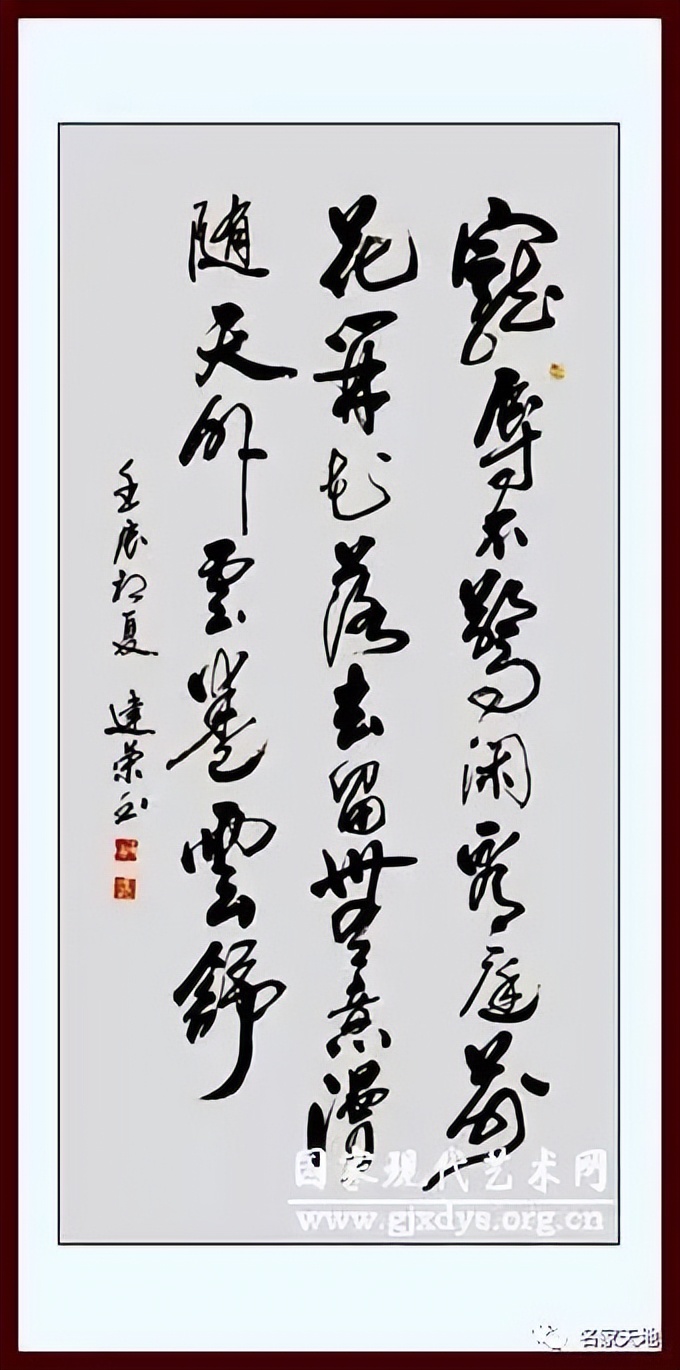 寵辱不驚闲看庭前
花開花落去留無意漫
随天外雲卷雲舒
壬辰初夏 建榮书
国家现代艺术网
www.gjxdys.org.cn
名家天地